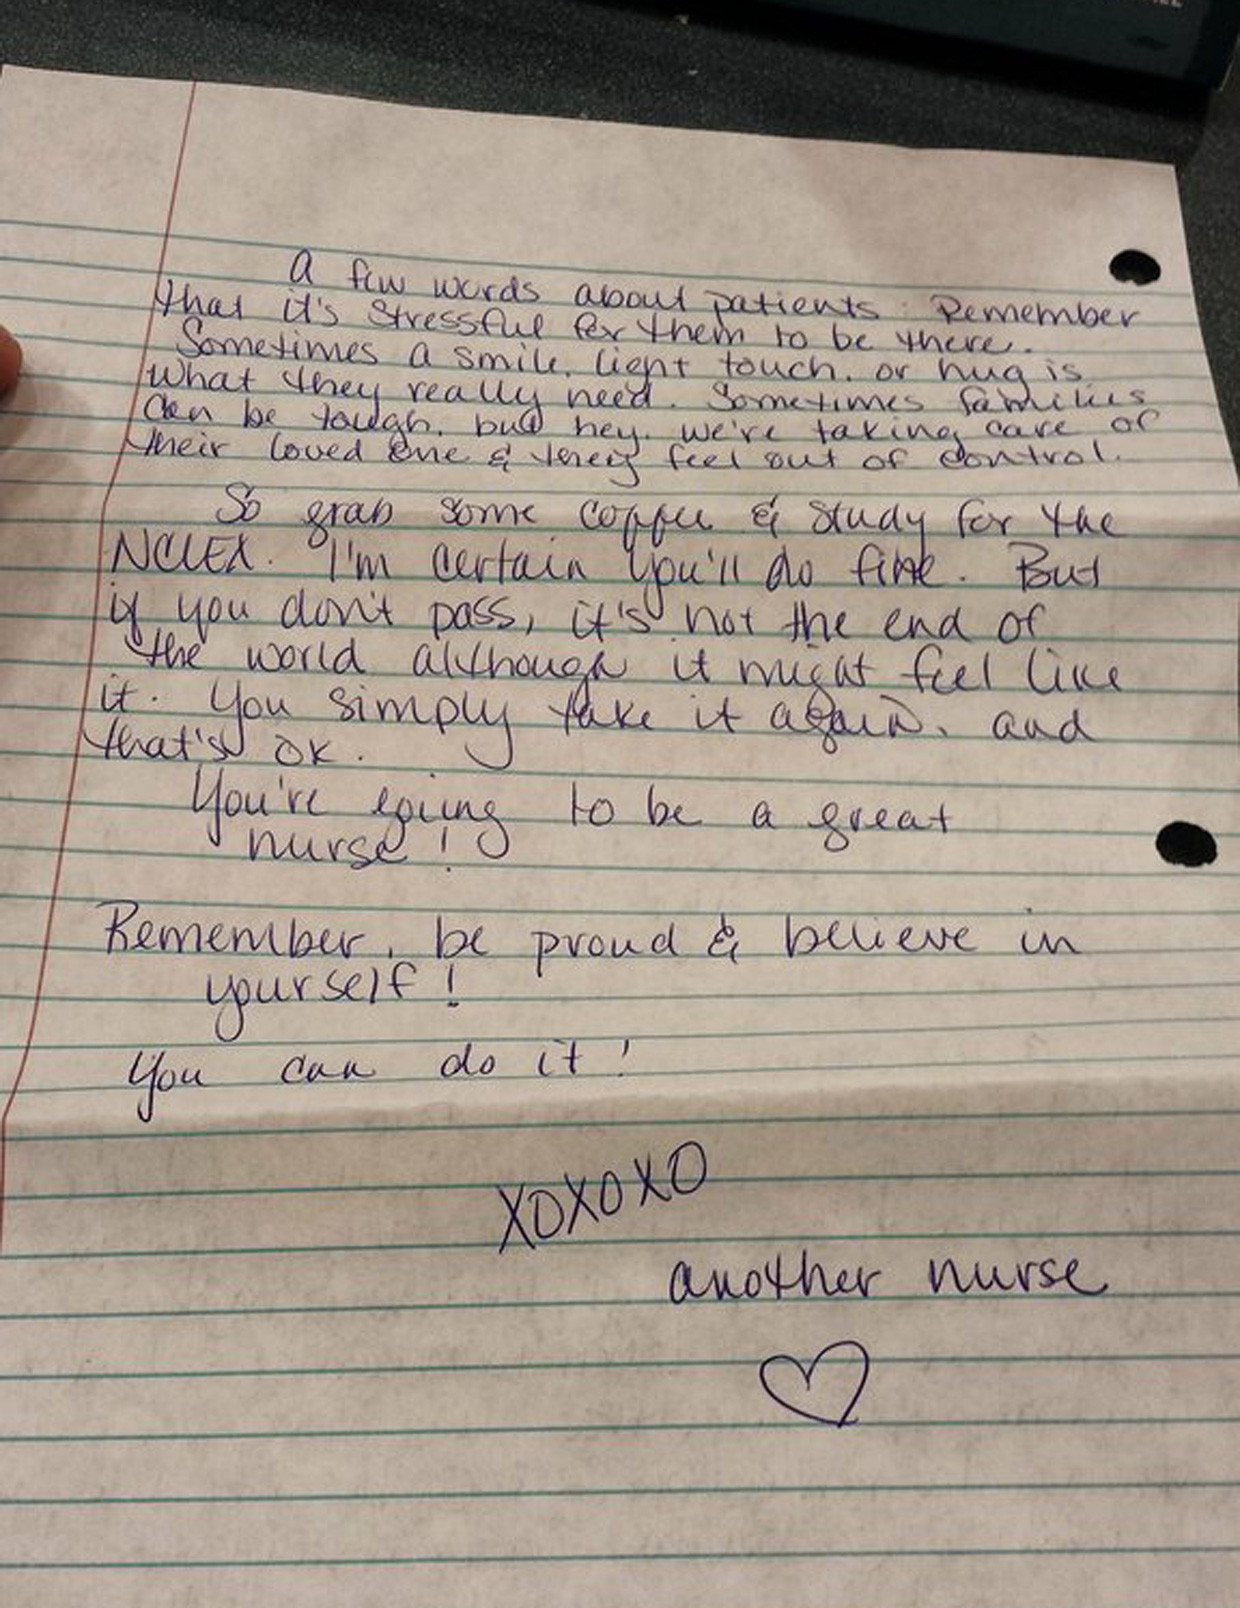 A few words about patients: Remember
that it's stressful for them to be there.
Sometimes a smile, light touch, or hug is
what they really need. Sometimes families
can be tough, but hey, we're taking care of
their loved one & they feel out of control.
So grab some coffee & study for the
NCLEX. I'm certain you'll do fine. But
if you don't pass, it's not the end of
the world although it might feel like
it. You simply take it again, and
that's OK.
You're going to be a great
nurse!
Remember, be proud & believe in
yourself!
You can do it!
XOXOXO
another nurse